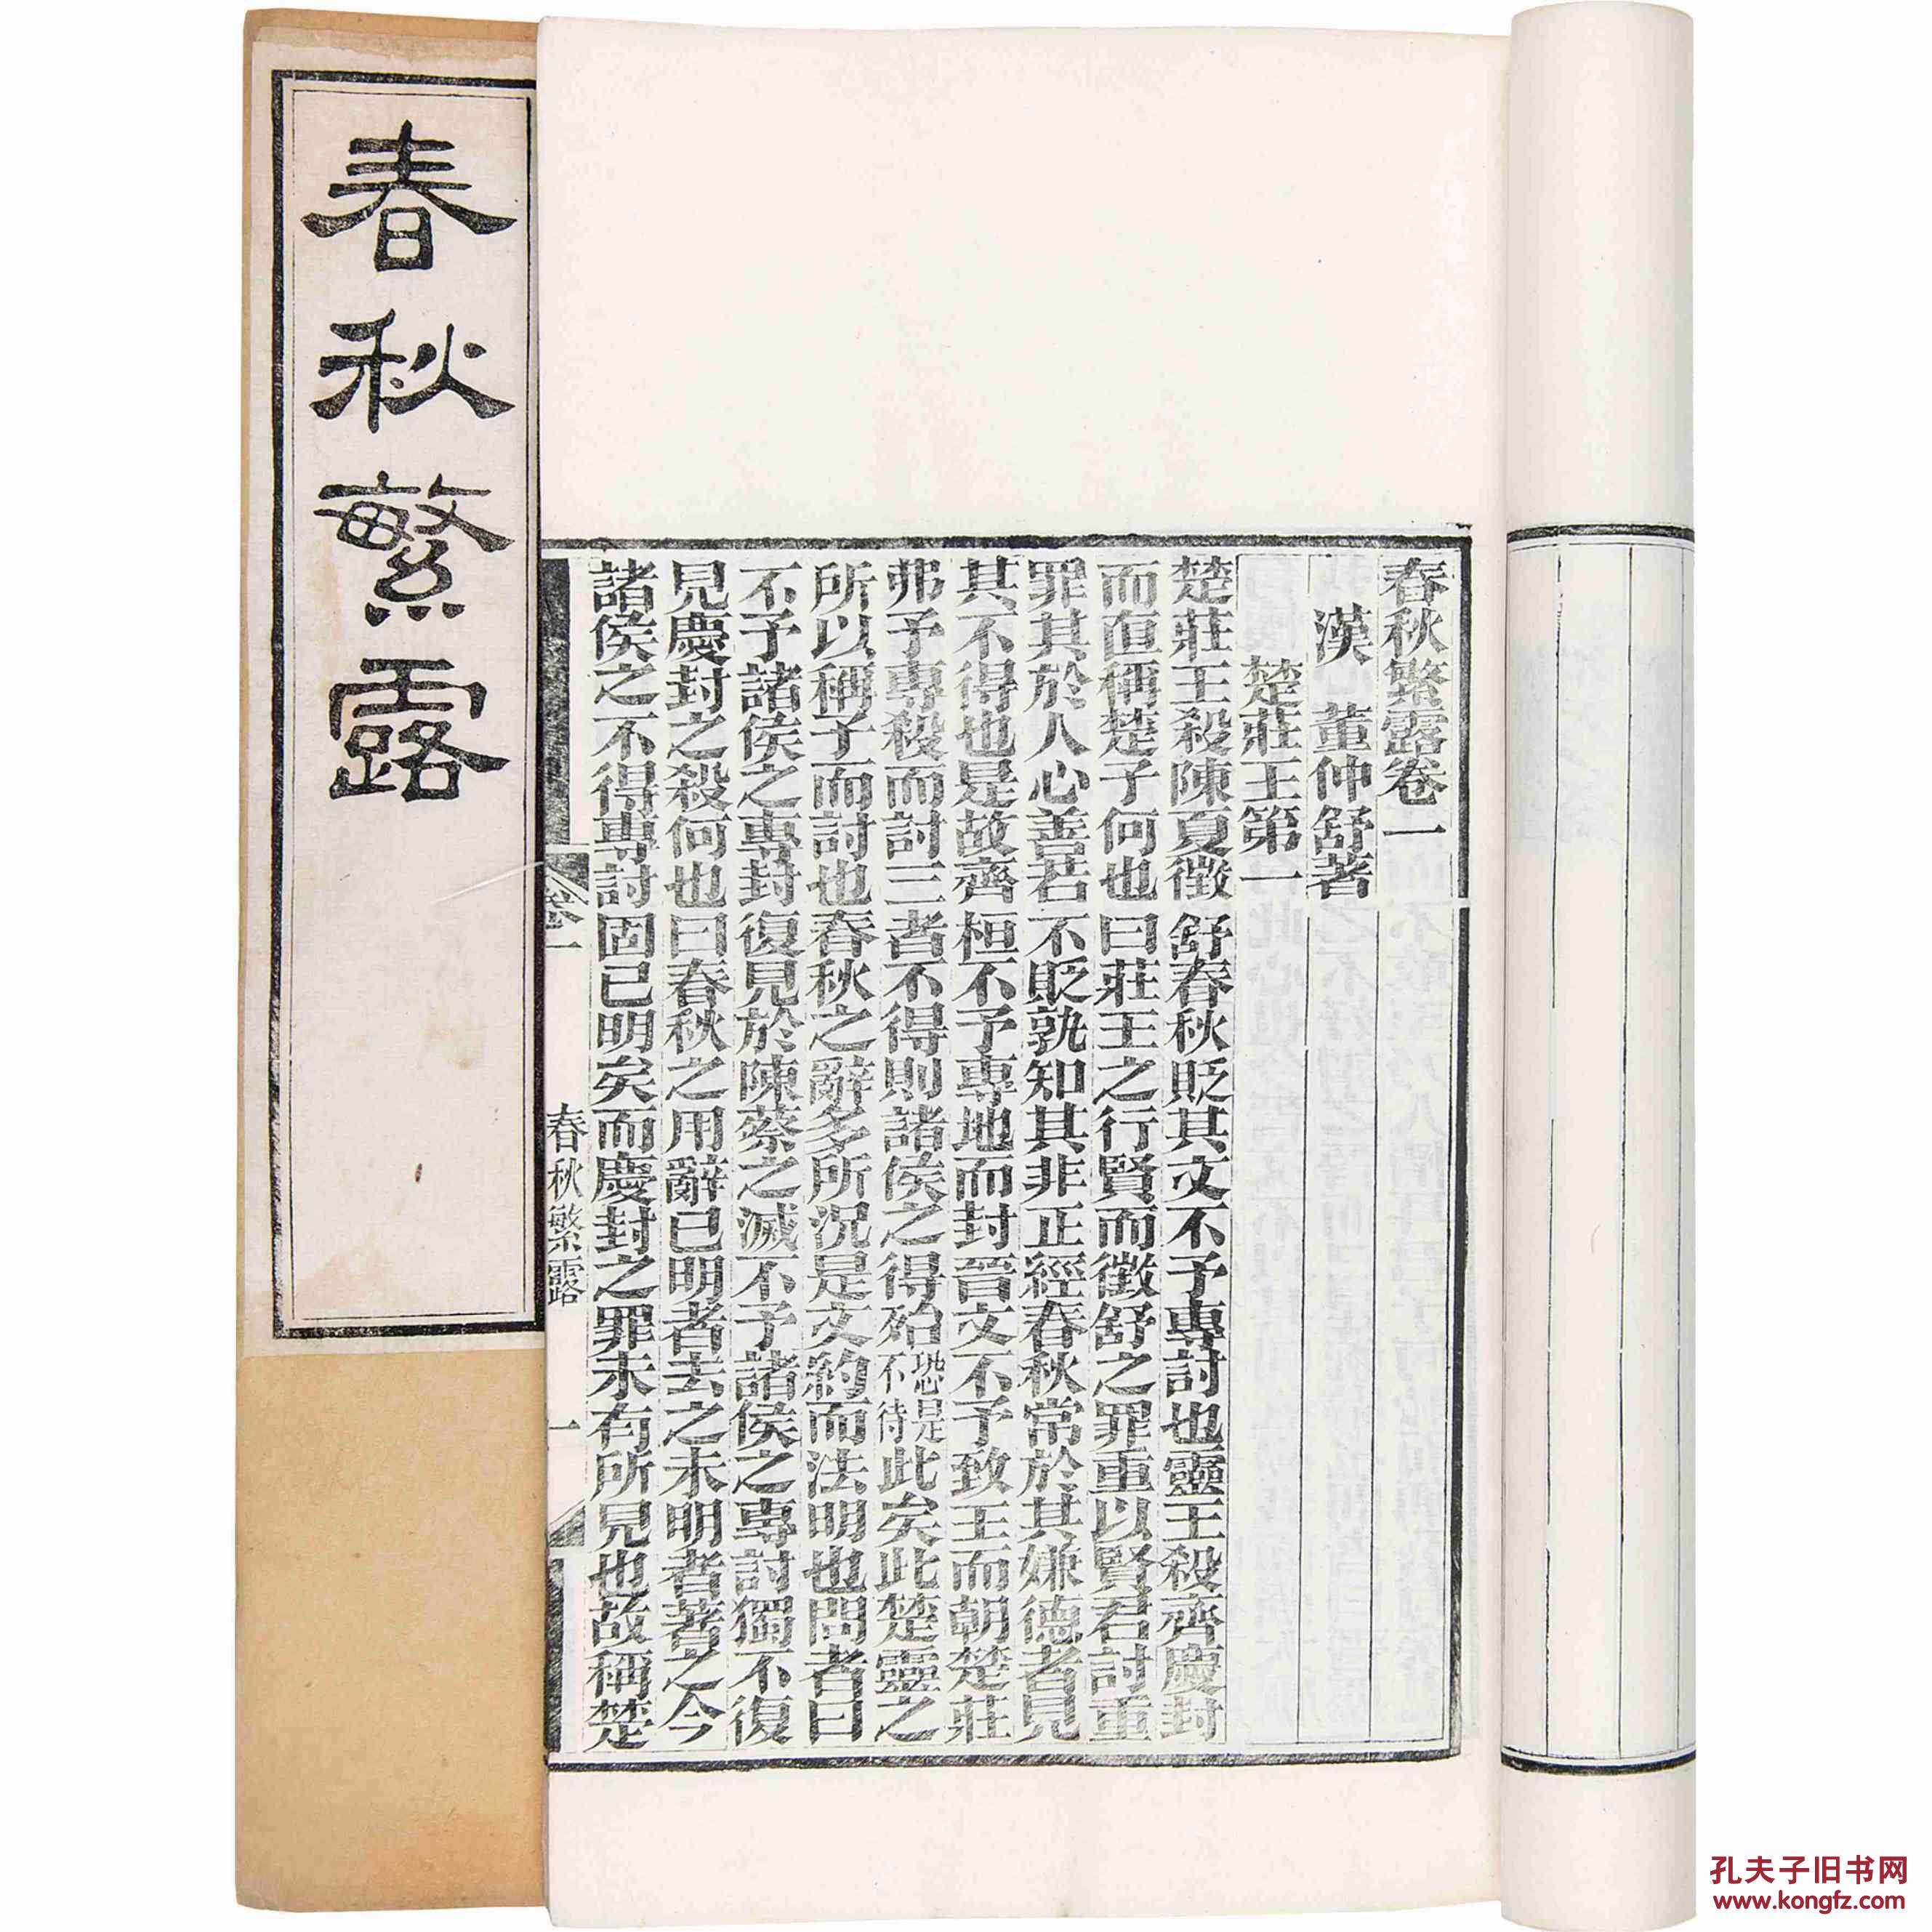 春秋繁露
春秋繁露卷一
漢 董仲舒著
楚莊王第一
楚莊王殺陳夏徵舒春秋貶其文不予專討也靈王殺齊慶封
而直稱楚子何也曰莊王之行賢而徵舒之罪重以賢君討重
罪其於人心善若不貶孰知其非正經春秋常於其嫌德者見
其不得也是故齊桓不予專地而封晉文不予致王而朝楚莊
弗予專殺而討三者不得則諸侯之得殆恐是不待此矣此楚靈之
所以稱子而討也春秋之辭多所況是文約而法明也問者曰
不予諸侯之專封復見於陳蔡之滅不予諸侯之專討獨不復
見慶封之殺何也曰春秋之用辭已明者去之未明者著之今
諸侯之不得專討固已明矣而慶封之罪未有所見也故稱楚
卷一
春秋繁露
一
孔夫子旧书网
www.kongfz.com